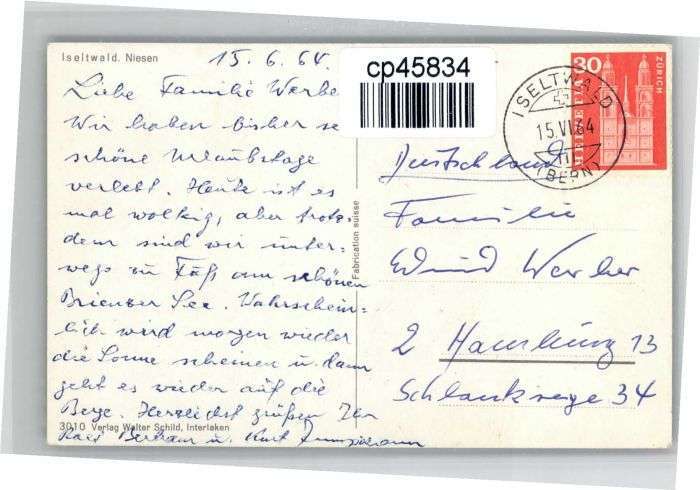 Iseltwald. Niesen
15. 6. 64.
Liebe Familie Werbe
Wir haben bisher se
schöne Urlaubstage
verlebt. Heute ist es
mal wolkig, aber trotz-
dem sind wir unter-
wegs zu Fuß am schönen
Brienzer See. Wahrschein-
lich wird morgen wieder
die Sonne scheinen u. dann
geht es wieder auf die
Berge. Herzlichst grüßen Ihr
3010 Verlag Walter Schild, Interlaken
u. Kurt
Fabrication suisse
cp45834
30
ZÜRICH
HELVETIA
ISELTWALD
15.VI.64
(BERN)
Deutschland
Familie
Werber
2 Hamburg 13
34